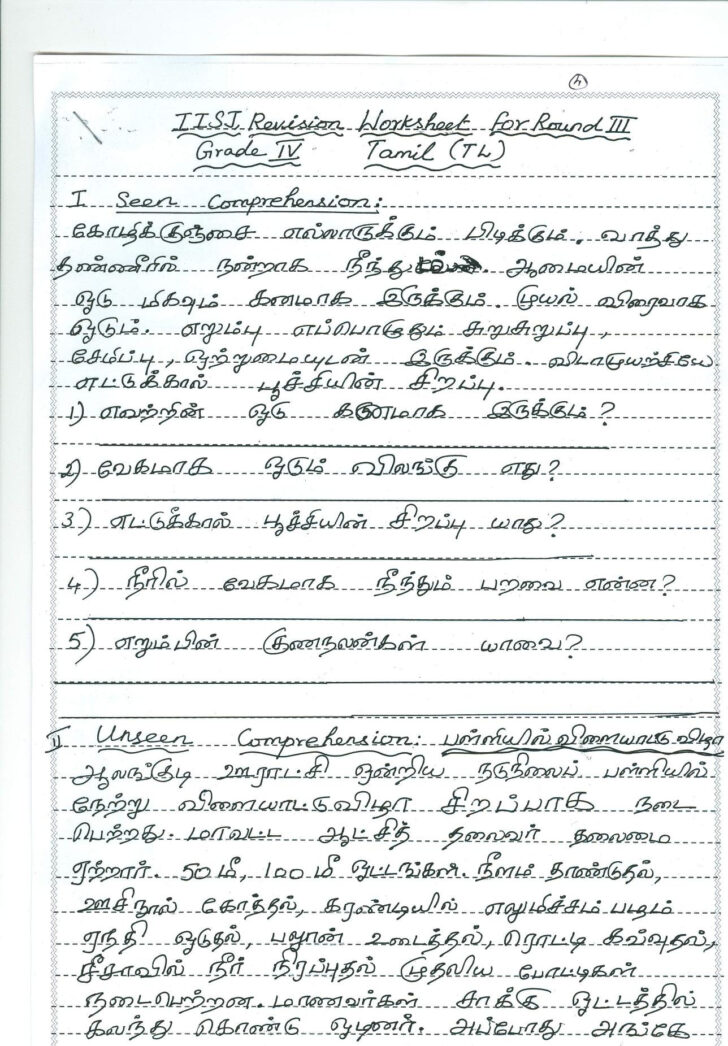 4
IISI Revision Worksheet for Round III
Grade IV Tamil (TL)
I Seen Comprehension:
கோழிக்குஞ்சை எல்லாருக்கும் பிடிக்கும். வாத்து
தண்ணீரில் நன்றாக நீந்தும். ஆமையின்
ஓடு மிகவும் கனமாக இருக்கும். முயல் விரைவாக
ஓடும். எறும்பு எப்பொழுதும் சுறுசுறுப்பு,
சேமிப்பு, ஒற்றுமையுடன் இருக்கும். விடாமுயற்சியே
எட்டுக்கால் பூச்சியின் சிறப்பு.
1) எவற்றின் ஓடு கனமாக இருக்கும்?
2) வேகமாக ஓடும் விலங்கு எது?
3) எட்டுக்கால் பூச்சியின் சிறப்பு யாது?
4) நீரில் வேகமாக நீந்தும் பறவை என்ன?
5) எறும்பின் குணநலன்கள் யாவை?
II Unseen Comprehension: பள்ளியில் விளையாட்டு விழா
ஆலங்குடி ஊராட்சி ஒன்றிய நடுநிலைப் பள்ளியில்
நேற்று விளையாட்டுவிழா சிறப்பாக நடை
பெற்றது. மாவட்ட ஆட்சித் தலைவர் தலைமை
ஏற்றார். 50 மீ, 100 மீ ஓட்டங்கள். நீளம் தாண்டுதல்,
ஊசிநூல் கோத்தல், கரண்டியில் எலுமிச்சம் பழம்
ஏந்தி ஓடுதல், பலூன் உடைத்தல், ரொட்டி கவ்வுதல்,
சீசாவில் நீர் நிரப்புதல் முதலிய போட்டிகள்
நடைபெற்றன. மாணவர்கள் சாக்கு ஓட்டத்தில்
கலந்து கொண்டு ஓடினர். அப்போது அங்கே